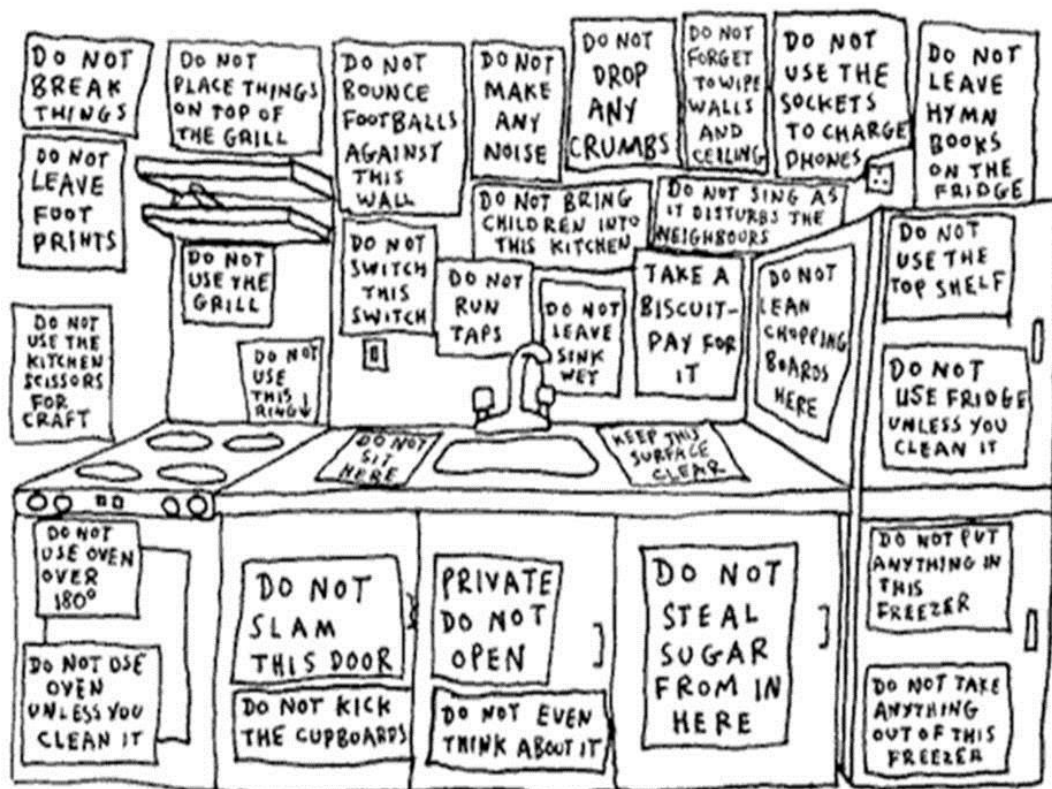 DO NOT
BREAK
THINGS
DO NOT
PLACE THINGS
ON TOP OF
THE GRILL
DO NOT
BOUNCE
FOOTBALLS
AGAINST
THIS
WALL
DO NOT
MAKE
ANY
NOISE
DO NOT
DROP
ANY
CRUMBS
DO NOT
FORGET
TO WIPE
WALLS
AND
CEILING
DO NOT
USE THE
SOCKETS
TO CHARGE
PHONES
DO NOT
LEAVE
HYMN
BOOKS
ON THE
FRIDGE
DO NOT
LEAVE
FOOT
PRINTS
DO NOT BRING
CHILDREN INTO
THIS KITCHEN
DO NOT SING AS
IT DISTURBS THE
NEIGHBOURS
DO NOT
USE THE
GRILL
DO NOT
SWITCH
THIS
SWITCH
DO NOT
RUN
TAPS
DO NOT
LEAVE
SINK
WET
TAKE A
BISCUIT-
PAY FOR
IT
DO NOT
LEAN
CHOPPING
BOARDS
HERE
DO NOT
USE THE
TOP SHELF
DO NOT
USE THE
KITCHEN
SCISSORS
FOR
CRAFT
DO NOT
USE
THIS
RING↓
DO NOT
USE FRIDGE
UNLESS YOU
CLEAN IT
DO NOT
SIT
HERE
KEEP THIS
SURFACE
CLEAR
DO NOT
USE OVEN
OVER
180°
DO NOT USE
OVEN
UNLESS YOU
CLEAN IT
DO NOT
SLAM
THIS DOOR
DO NOT KICK
THE CUPBOARDS
PRIVATE
DO NOT
OPEN
DO NOT EVEN
THINK ABOUT IT
DO NOT
STEAL
SUGAR
FROM IN
HERE
DO NOT PUT
ANYTHING IN
THIS
FREEZER
DO NOT TAKE
ANYTHING
OUT OF THIS
FREEZER